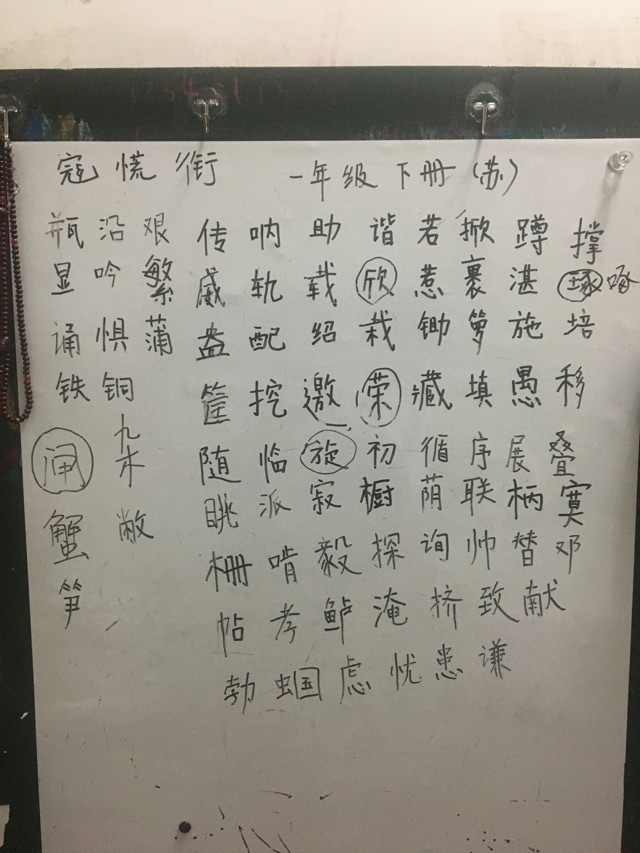 寇 慌 衔 一年级下册(苏)
瓶 沿 艰 传 呐 助 谐 若 掀 蹲 撑
显 吟 繁 威 轨 载 欣 惹 裹 湛 琢 啄
诵 惧 蒲 盎 配 绍 栽 锄 箩 施 培
铁 铜 筐 挖 邀 荣 藏 填 愚 移
闸 杂 随 临 旋 初 循 序 展 叠
蟹 眺 派 寂 橱 荫 联 柄 寞
笋 栅 啃 毅 探 询 帅 替 邓
帖 鲈 淹 挤 致 献
勃 蝈 虑 忧 患 谦